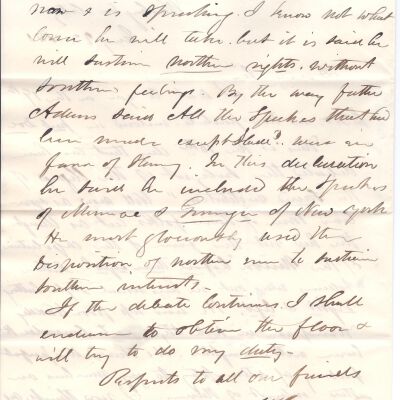 now & is speaking. I know not what
course he will take. but it is said he
will sustain northern rights. without
Southern feelings. By the way father
Adams said All the Speeches that had
been made except Slade's. were in
favor of Slavery. In this declaration
he said he included the Speeches
of Munroe & Granger of New York
He most gloriously used the
disposition of northern men to sustain
Southern interests.
If the debate continues. I shall
endeavor to obtain the floor &
will try to do my duty.
Respects to all our friends